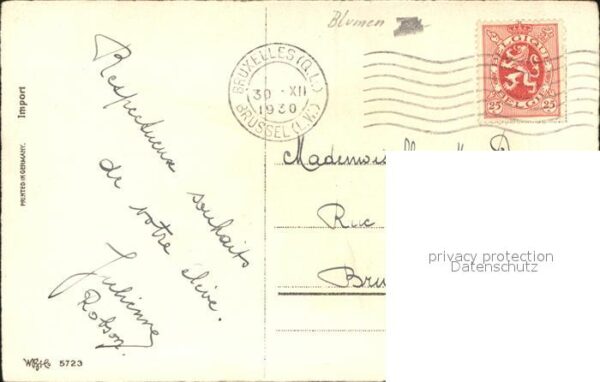 Blumen
BRUXELLES (Q.L.)
30 - XII
1930
BRUSSEL (L.W.)
BELGIQUE
BELGIË
25 25
Import
PRINTED IN GERMANY.
Respectueux souhaits
de votre élève.
Julienne
Robson.
Mademois
Rue
Bru
privacy protection
Datenschutz
5723